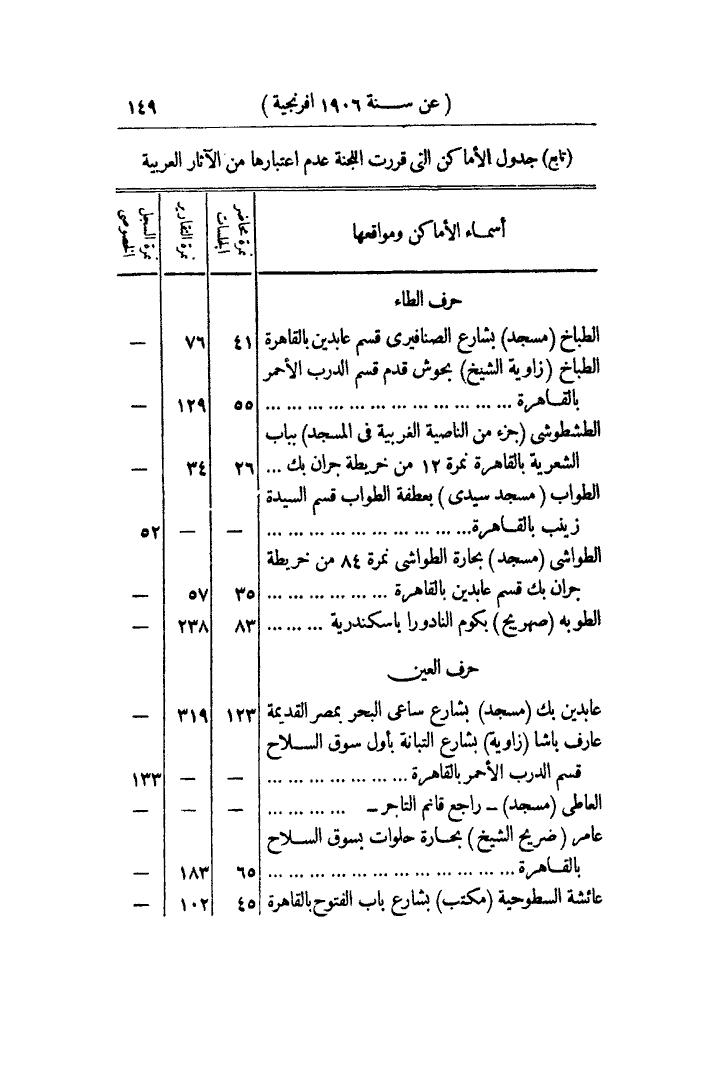 (عن سنة ١٩٠٦ افرنجية) ١٤٩
(تابع) جدول الأماكن التى قررت اللجنة عدم اعتبارها من الآثار العربية
أسماء الأماكن ومواقعها | نمرة محاضر الجلسات | نمرة التقارير | نمرة السجل الخصوصى
حرف الطاء
الطباخ (مسجد) بشارع الصنافيرى قسم عابدين بالقاهرة | ٤١ | ٧٦ | —
الطباخ (زاوية الشيخ) بحوش قدم قسم الدرب الأحمر
بالقاهرة ... ... ... ... ... ... ... ... ... ... ... ... | ٥٥ | ١٢٩ | —
الطشطوشى (جزء من الناصية الغربية فى المسجد) بباب
الشعرية بالقاهرة نمرة ١٢ من خريطة جران بك ... | ٢٦ | ٣٤ | —
الطواب (مسجد سيدى) بعطفة الطواب قسم السيدة
زينب بالقاهرة... ... ... ... ... ... ... ... ... ... | — | — | ٥٢
الطواشى (مسجد) بحارة الطواشى نمرة ٨٤ من خريطة
جران بك قسم عابدين بالقاهرة ... ... ... ... ... ... | ٣٥ | ٥٧ | —
الطوبه (صهريج) بكوم النادورا باسكندرية ... ... ... | ٨٣ | ٢٣٨ | —
حرف العين
عابدين بك (مسجد) بشارع ساعى البحر بمصر القديمة | ١٢٣ | ٣١٩ | —
عارف باشا (زاوية) بشارع التبانة بأول سوق السلاح
قسم الدرب الأحمر بالقاهرة ... ... ... ... ... ... ... | — | — | ١٣٣
العاطى (مسجد) — راجع قانم التاجر — ... ... ... ... | — | — | —
عامر (ضريح الشيخ) بحارة حلوات بسوق السلاح
بالقاهرة ... ... ... ... ... ... ... ... ... ... ... ... | ٦٥ | ١٨٣ | —
عائشة السطوحية (مكتب) بشارع باب الفتوح بالقاهرة | ٤٥ | ١٠٢ | —